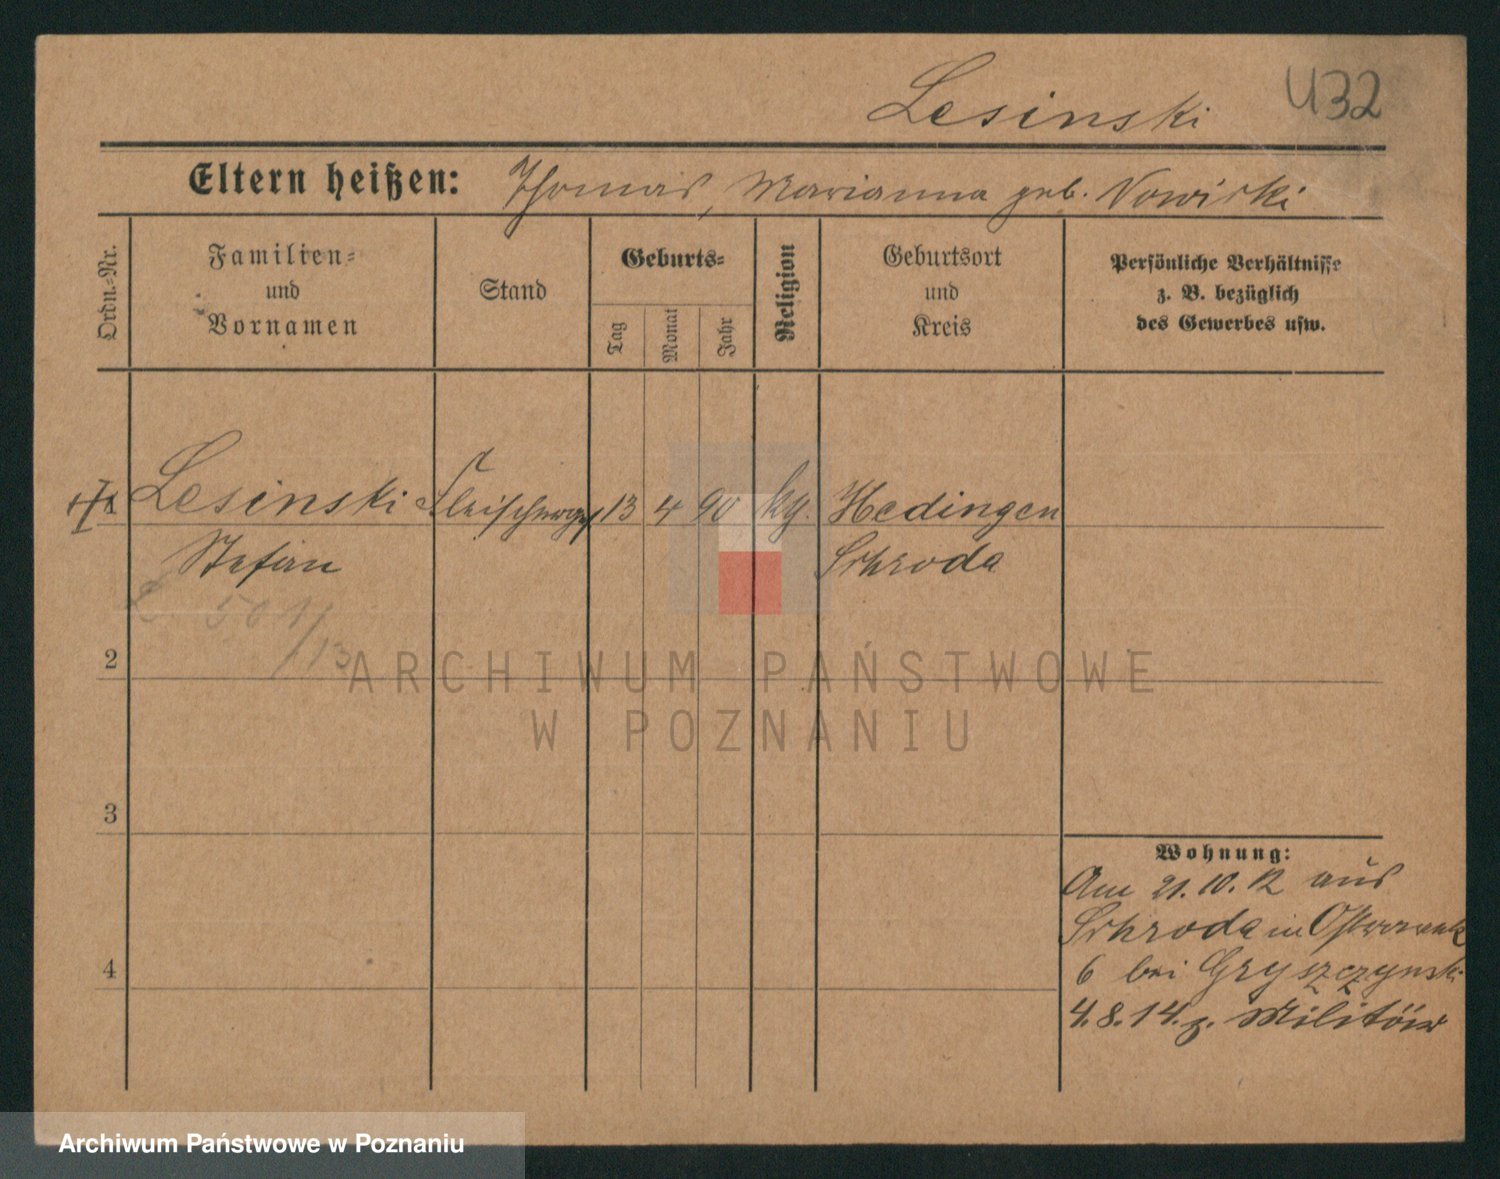 Lesinski 432
Eltern heißen: Thomas, Marianna geb. Nowicki
Ordn.-Nr.
Familien-
und
Vornamen
Stand
Geburts-
Tag
Monat
Jahr
Religion
Geburtsort
und
Kreis
Persönliche Verhältnisse
z. B. bezüglich
des Gewerbes usw.
Lesinski Fleischerges. 13 4 90 kg. Hedingen
Stefan Schroda
501/13
2
3
4
Wohnung:
Am 21.10.12 aus
Schroda in
6 bei Gryszczynski
4.8.14. z. Militär
ARCHIWUM PAŃSTWOWE
W POZNANIU
Archiwum Państwowe w Poznaniu